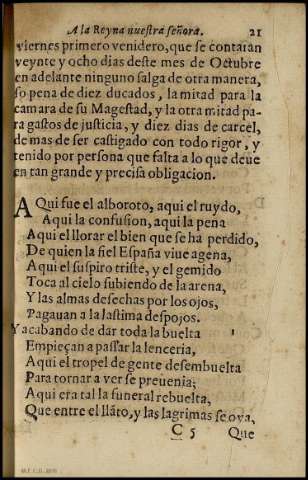 A la Reyna nuestra señora. 21
viernes primero venidero, que se contaran
veynte y ocho dias deste mes de Octubre
en adelante ninguno salga de otra manera,
so pena de diez ducados, la mitad para la
camara de su Magestad, y la otra mitad pa-
ra gastos de justicia, y diez dias de carcel,
de mas de ser castigado con todo rigor, y
tenido por persona que falta a lo que deue
en tan grande y precisa obligacion.
AQui fue el alboroto, aqui el ruydo,
Aqui la confusion, aqui la pena
Aqui el llorar el bien que se ha perdido,
De quien la fiel España viue agena,
Aqui el suspiro triste, y el gemido
Toca al cielo subiendo de la arena,
Y las almas desechas por los ojos,
Pagauan a la lastima despojos.
Y acabando de dar toda la buelta
Empieçan a passar la lenceria,
Aqui el tropel de gente desembuelta
Para tornar a ver se preuenia;
Aqui era tal la funeral rebuelta,
Que entre el llãto, y las lagrimas se oya,
C 5 Que